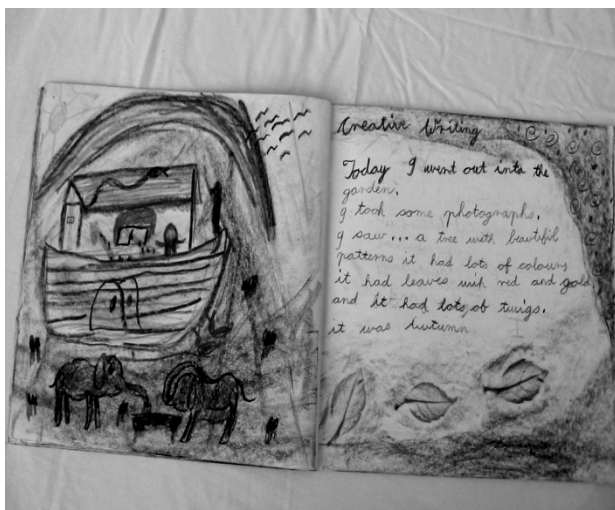 Creative Writing
Today I went out into the
garden.
I took some photographs.
I saw... a tree with beautiful
patterns it had lots of colours
it had leaves with red and gold
and it had lots of twigs.
it was Autumn